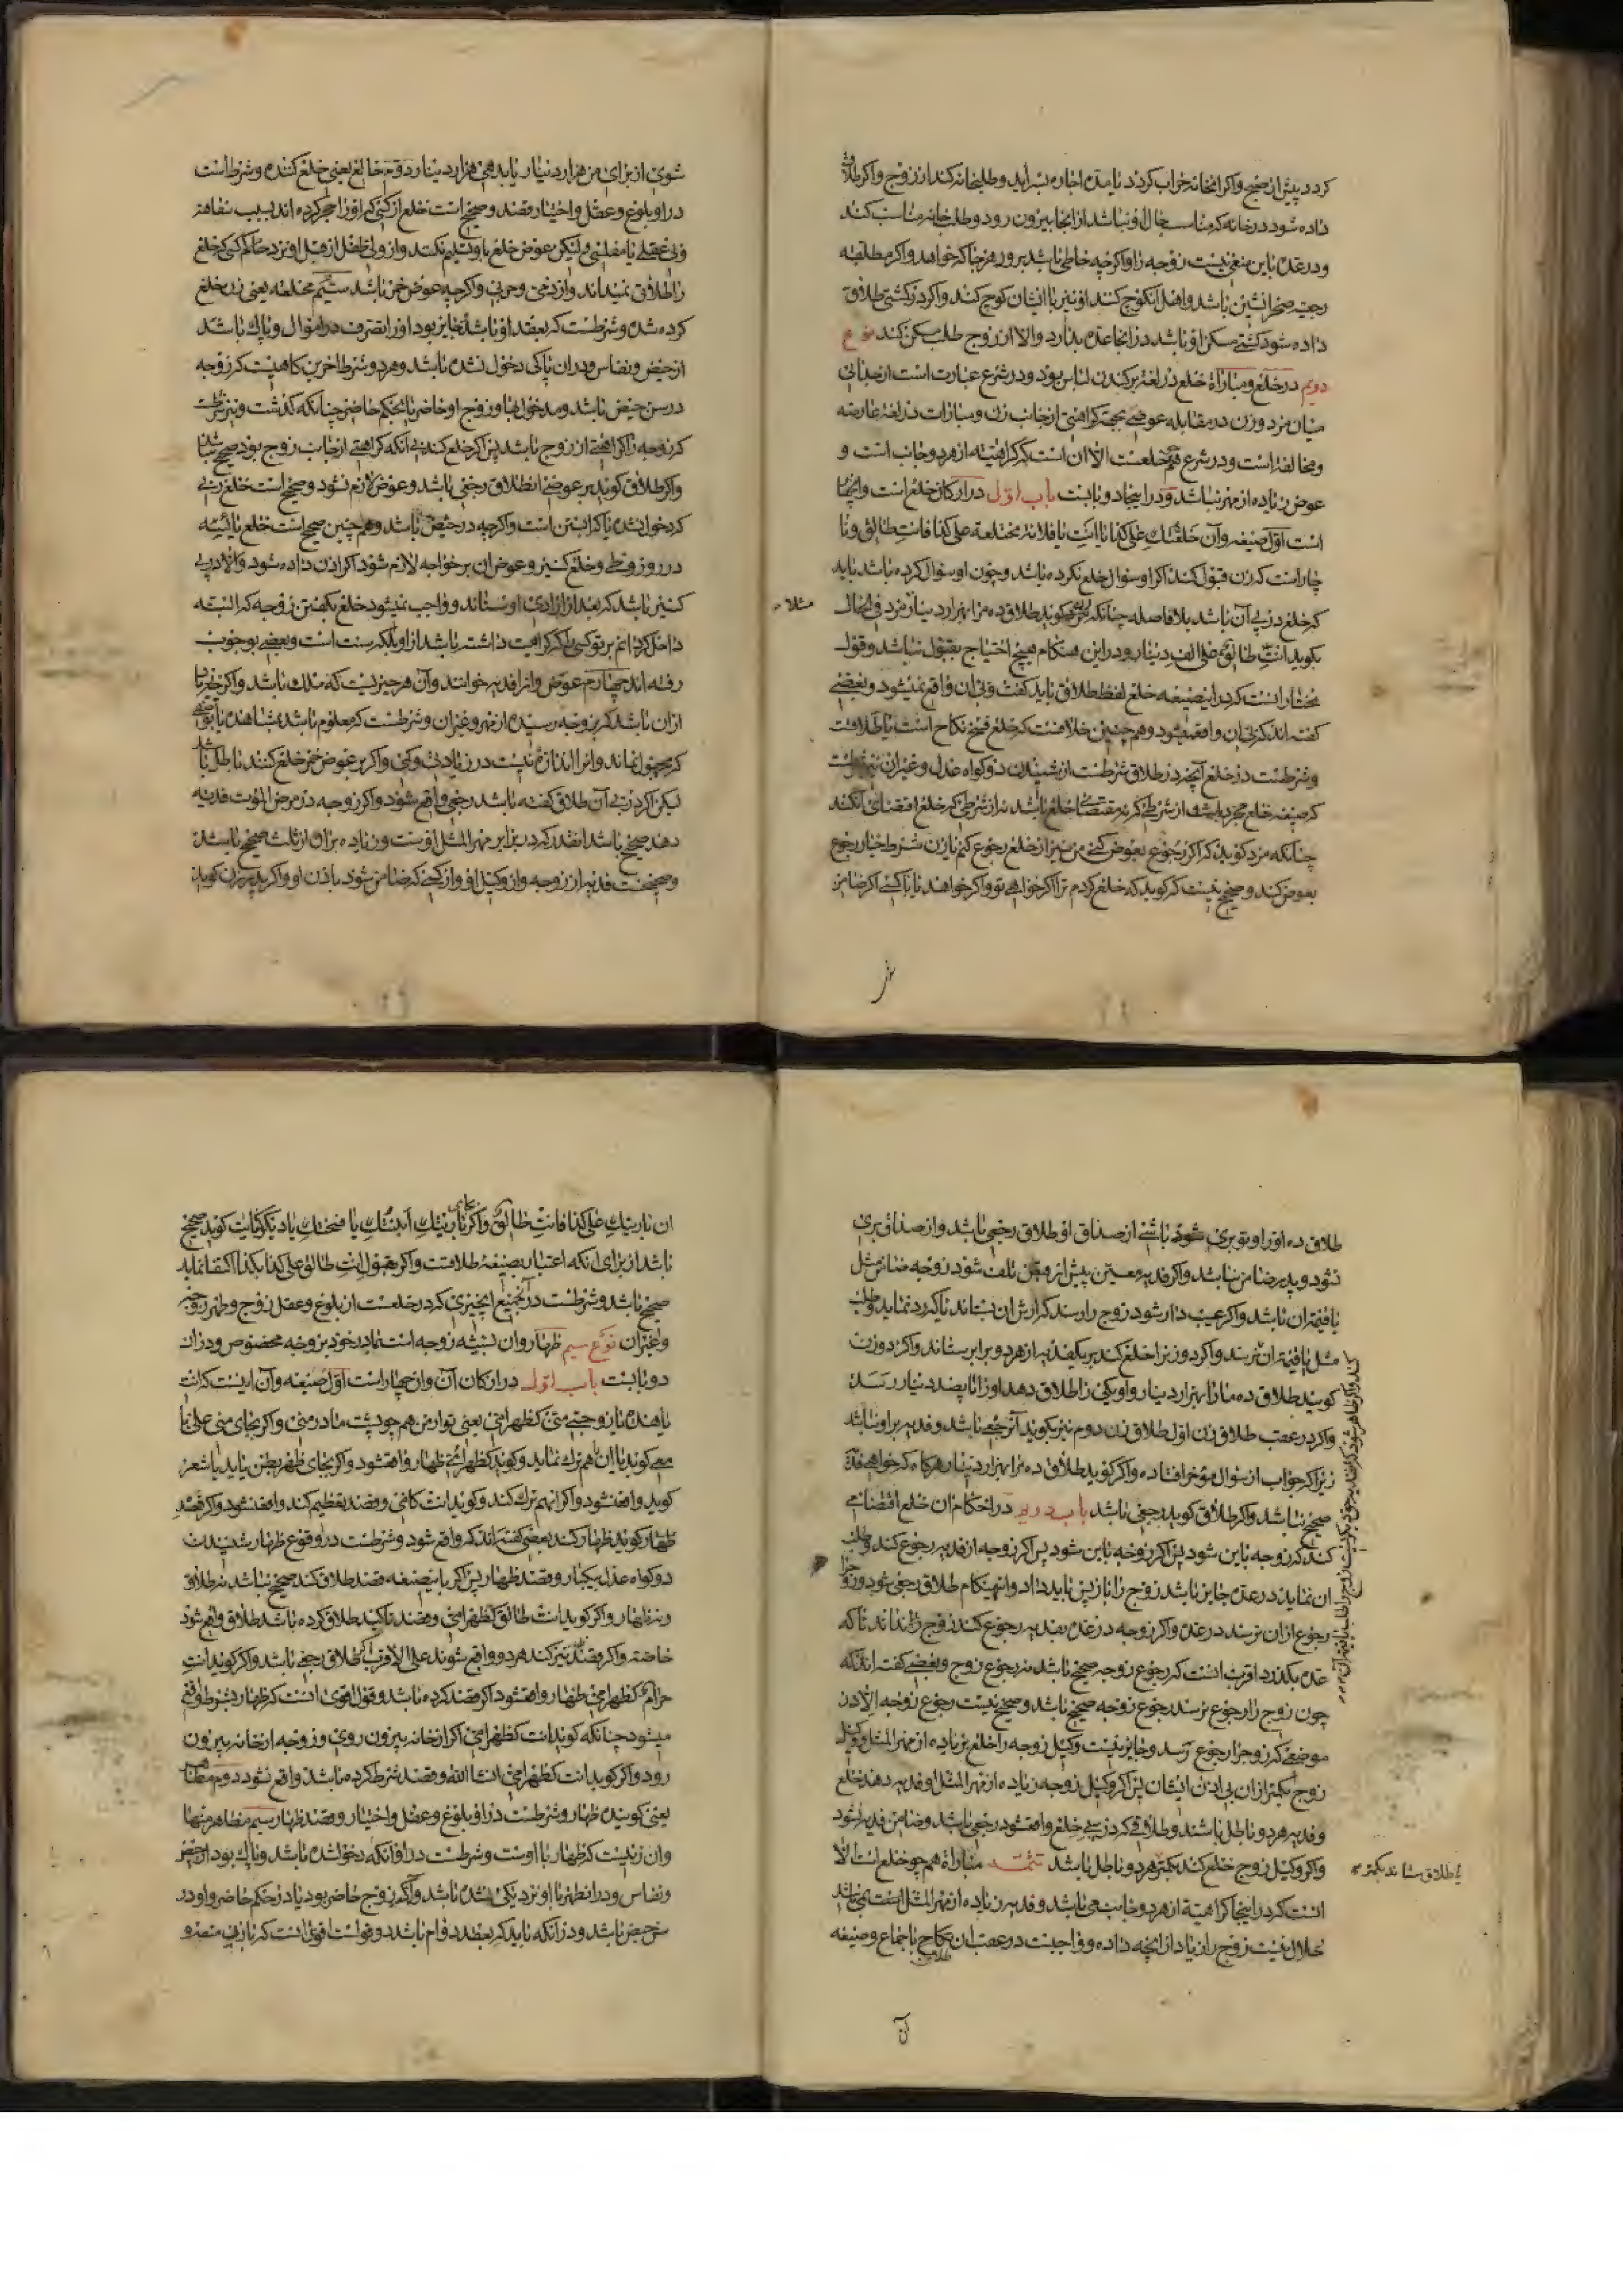 کردد پیش از صحیح واکر انخانه خراب کردد تا مدة اجاره بسر آید وطلب خانه کند از زوج واکر طلاق
داده شود در خانه که مناسب حال او نباشد از انجا بیرون رود وطلب خانه مناسب کند
ودر عدة باین منعی نیست زوجه را واکرچه حامل باشد برود هر جا که خواهد واکر مطلقه
رجعیه صحرانشین باشد واهل آن کوچ کنند او نیز با ایشان کوچ کند واکر در کشتی طلاق
داده شود کشتی مسکن او باشد در انجا عده بدارد والا از زوج طلب مسکن کند نوع
دویم در خلع ومباراة خلع در لغة برکندن لباس بود ودر شرع عبارت است از جدائی
میان مرد وزن در مقابله عوضی بجهة کراهتی از جانب زن ومبارات در لغة معارضه
ومخالفة است ودر شرع قسم خلعست الا ان است که کراهیته از هر دو جانب است و
عوض زیاده از مهر نباشد ودر اینجا دو بابت باب اول در ارکان خلع است وانچها
است اول صیغه وآن خلعتك علی کذا یا انت یا فلانة مختلعة علی کذا فانت طالق ونا
چار است که زن قبول کند اکر او سوال خلع نکرده باشد وچون او سوال کرده باشد باید
که خلع در پی آن باشد بلا فاصله چنانکه زن کوید طلاق ده مرا بهزار دینار مرد فی الحال
بکوید انت طالق علی الف دینار ودر این هنکام هیچ احتیاج بقبول نباشد وقول
مختار انست که در این صیغه خلع لفظ طلاق باید کفت وبی ان واقع نمیشود وبعضی
کفته اند که بی ان واقع میشود وهم چنین خلافست که خلع فسخ نکاح است یا طلاقست
وشرطست در خلع آنچه در طلاق شرطست از شنیدن دو کواه عدل وغیر ان نیز شرطست
که صیغه خلع مجرد باشد از شرطی که نه مقتضای خلع باشد نه از شرطی که خلع اقتضای آن کند
چنانکه مرد کوید که اکر رجوع بعوض کنی من نیز از خلع رجوع کنم یا زن شرط خیار رجوع
بعوض کند وصحیح نیست که کوید که خلع کردم ترا اکر خواهی تو واکر خواهند یا با کسی اکر ضامن
مثلا
شوی از برای من هزار دینار یا بدهی هزار دینار دوم خالع یعنی خلع کننده وشرط است
در او بلوغ وعقل واختیار وقصد وصحیح است خلع از کسی که او را حجر کرده اند بسبب سفاهة
وبی عقلی یا مفلسی ولیکن عوض خلع باو تسلیم نکنند واز ولی طفل از قبل او نزد حاکم کسی که خلع
را طلاق نمیداند واز ذمی وحربی واکرچه عوض خمر باشد سیم مختلعه یعنی زن خلع
کرده شده وشرطست که بعقد او باشد وجایز بود او را تصرف در اموال وپاك باشد
از حیض ونفاس ودر ان پاکی دخول نشده باشد وهر دو شرط اخرین کاهیست که زوجه
در سن حیض باشد ومدخول بها وزوج او حاضر یا بحکم حاضر چنانکه کذشت ونیز شرطست
که زوجه را کراهتی از زوج باشد پس اکر خلع کند بی آنکه کراهتی از جانب زوج بود صحیح نباشد
واکر طلاق کوید بر عوضی ان طلاق رجعی باشد وعوض لازم نشود وصحیح است خلع زنی
که دخول نشده یا که ابستن است واکرچه در حیض باشد وهم چنین صحیح است خلع یائسه
در روز وطی وخلع کنیز وعوض ان بر خواجه لازم شود اکر اذن داده شود والا در پی
کنیز باشد که بعد از ازادی او بستاند وواجب نمیشود خلع بکفتن زوجه که البته
داخل کردانم بر تو کسی را که کراهت داشته باشد از او بلکه سنت است وبعضی بوجوب
رفته اند چهارم عوض وانرا فدیه خوانند وآن هر چیزیست که ملك باشد واکرچه زیاده
از ان باشد که بزوجه رسیده از مهر وغیر ان وشرطست که معلوم باشد بمشاهده یا بوصفی
که مجهول نماند وانرا اندازه نیست در زیادتی وکمی واکر بر عوض خمر خلع کنند باطل باشد
لیکن اکر در پی آن طلاق کفته باشد رجعی واقع شود واکر زوجه در مرض الموت فدیه
دهد صحیح باشد انقدر که در برابر مهر المثل اوست وزیاده بر ان از ثلث صحیح باشد
وصحیحست فدیه از زوجه واز وکیل او واز کسی که ضامن شود باذن او واکر پدر زن کوید
طلاق ده او را وتو بری شوی از صداق او طلاق رجعی باشد واز صداق بری
نشود وپدر ضامن نباشد واکر فدیه معین پیش از قبض تلف شود زوجه ضامن مثل
یا قیمة ان باشد واکر عیب دار شود زوج را رسد که ارش ان بستاند یا که رد نماید وطلب
مثل یا قیمة ان کند واکر دو زن را خلع کند بر یك فدیه از هر دو برابر ستاند واکر دو زن
کویند طلاق ده ما را بهزار دینار واو یکی را طلاق دهد او را پانصد دینار رسد
واکر در عقب طلاق زن اول طلاق زن دوم نیز بکوید آن رجعی باشد وفدیه بر او نباشد
زیرا که جواب از سوال مؤخر افتاده واکر کوید طلاق ده مرا بهزار دینار هرکاه که خواهی فدیه
صحیح نباشد واکر طلاق کوید رجعی باشد باب دویم در احکام ان خلع اقتضا می
کند که زوجه باین شود پس اکر زوجه باین شود پس اکر زوجه از فدیه رجوع کند وطلب
ان نماید در عده جایز باشد زوج را باز پس باید داد وانهنکام طلاق رجعی شود وزوج را
رجوع از ان نرسد در عده واکر زوجه در عده بفدیه رجوع کند وزوج را نداند تا که
عده بکذرد اقرب انست که رجوع زوجه صحیح باشد نه رجوع زوج وبعضی کفته اند که
چون زوج را رجوع نرسد رجوع زوجه صحیح نباشد وصحیح نیست رجوع زوجه الا در
موضعی که زوج را رجوع رسد وجایز نیست وکیل زوجه را خلع بزیاده از مهر المثل ووکیل
زوج بکمتر از ان بی اذن ایشان پس اکر وکیل زوجه زیاده از مهر المثل او فدیه دهد خلع
وفدیه هر دو باطل باشند وطلاقی که در پی خلع واقع شود رجعی باشد وضامن فدیه نشود
واکر وکیل زوج خلع کند بکمتر هر دو باطل باشد تتمه مباراة هم چو خلع است الا
انست که در اینجا کراهیة از هر دو جانب می باشد وفدیه زیاده از مهر المثل نمی باشد
حلال نیست زوج را زیاد از انچه داده وواجبست در عقب ان طلاق باجماع وصیغه
یا طلاق ستاند بکمتر
آن
ان باریتك علی کذا فانت طالق واکر بجای باریتك ابنتك یا فسختك یا دیکر کنایت کوید صحیح
باشد از برای انکه اعتبار بصیغه طلاقست واکر بقول انت طالق علی کذا بکذا اکتفا نماید
صحیح باشد وشرطست در آن جمیع انچیزی که در خلعست از بلوغ وعقل زوج وطهر زوجه
وغیر ان نوع سیم ظهار وان تشبیه زوجه است بمادر خود بر وجه مخصوص ودر ان
دو بابت باب اول در ارکان آن وان چهار است اول صیغه وآن اینست که انت
یا هنده یا زوجتی منی کظهر امی یعنی تو از من هم چو پشت مادر منی واکر بجای منی علی یا
معی کوید یا ان هم ترك نماید وکوید کظهر امی ظهار واقع شود واکر بجای ظهر بطن یا ید یا شعر
کوید واقع نشود واکر انهم ترك کند وکوید انت کامی وقصد تعظیم کند واقع نشود واکر قصد
ظهار کوید ظهار کند بعضی کفته اند که واقع شود وشرطست در وقوع ظهار شنیدن
دو کواه عدل بیکبار وقصد ظهار پس اکر باین صیغه قصد طلاق کند صحیح نباشد نه طلاق
ونه ظهار واکر کوید انت طالق کظهر امی وقصد تاکید طلاق کرده باشد طلاق واقع شود
خاصه واکر قصد ظهار نیز کند هر دو واقع شوند علی الاقرب اکر طلاق رجعی باشد واکر کوید انت
حرام کظهر امی ظهار واقع شود اکر قصد کرده باشد وقول اقوی انست که ظهار بشرط واقع
میشود چنانکه کوید انت کظهر امی اکر از خانه بیرون روی وزوجه از خانه بیرون
رود واکر کوید انت کظهر امی انشا الله وقصد شرط کرده باشد واقع نشود دوم مظاهر
یعنی کوینده ظهار وشرطست در او بلوغ وعقل واختیار وقصد ظهار سیم مظاهر منها
وان زنیست که ظهار با اوست وشرطست در او انکه دخول شده باشد وپاك بود از حیض
ونفاس ودر ان طهر با او نزدیکی نشده باشد واکر زوج حاضر بود یا در حکم حاضر واو در
سن حیض باشد ودر انکه باید که بعقد دوام باشد دو قولست اقوی انست که با زنی متعه و